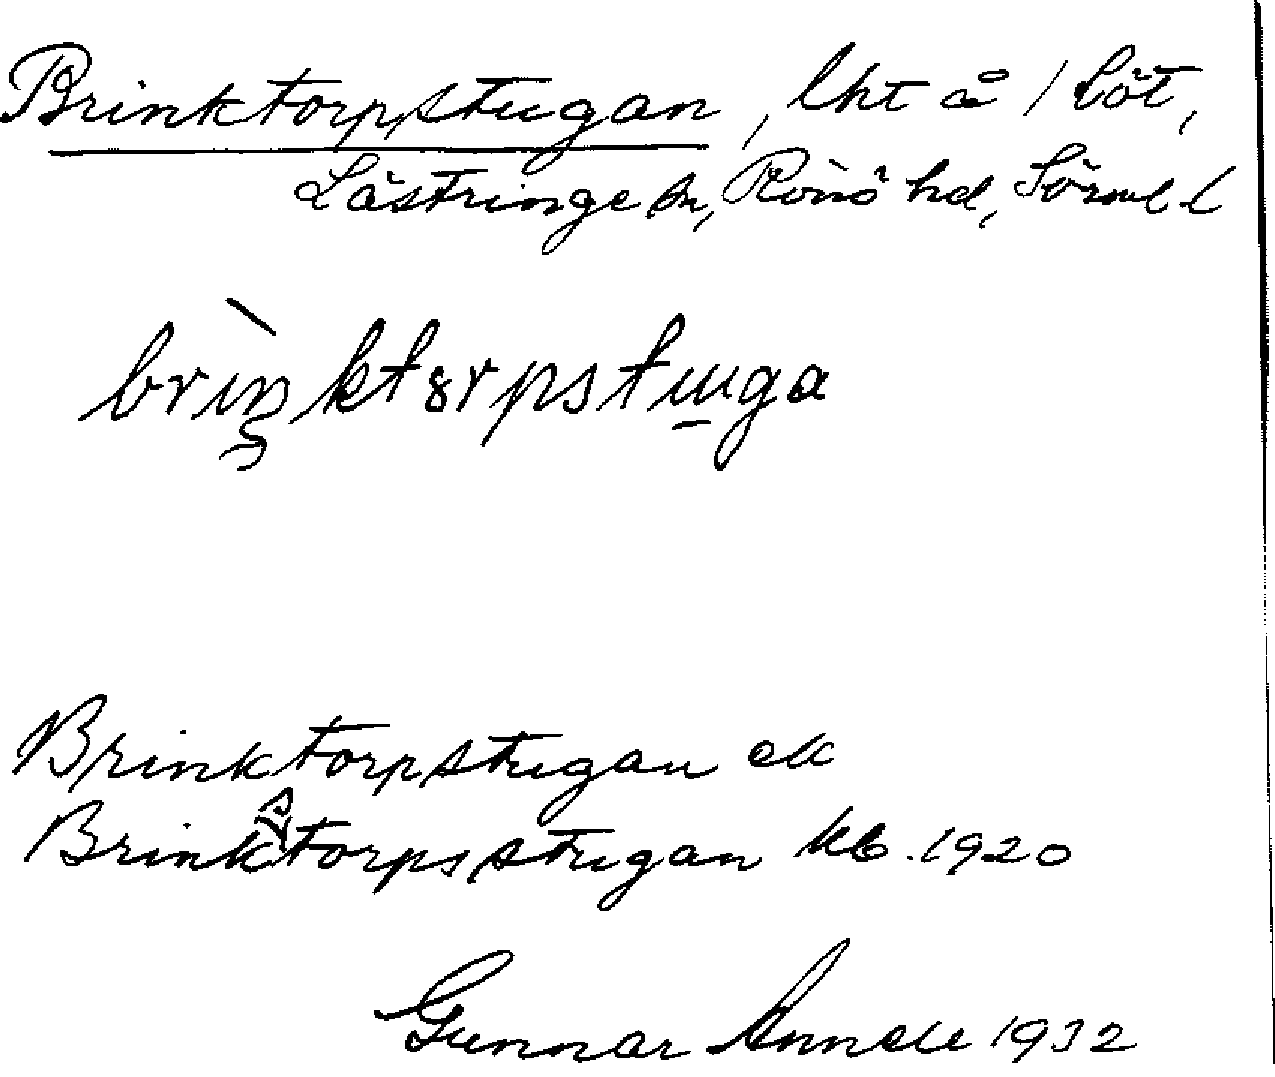 Brinktorpstugan, lht å 1 Löt,
Lästringe sn, Rönö hd, Sörml l
brìŋktɔrpstɯga
Brinktorpstugan ek
Brinktorpsstugan kb. 1920
Gunnar Annell 1932